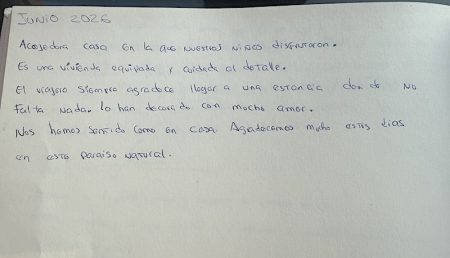 JUNIO 2026
Acogedora casa en la que nuestros niños disfrutaron.
Es una vivienda equipada y cuidada al detalle.
El viajero siempre agradece llegar a una estancia donde no
falta nada. Lo han decorado con mucho amor.
Nos hemos sentido como en casa. Agradecemos mucho estos dias
en este paraiso natural.